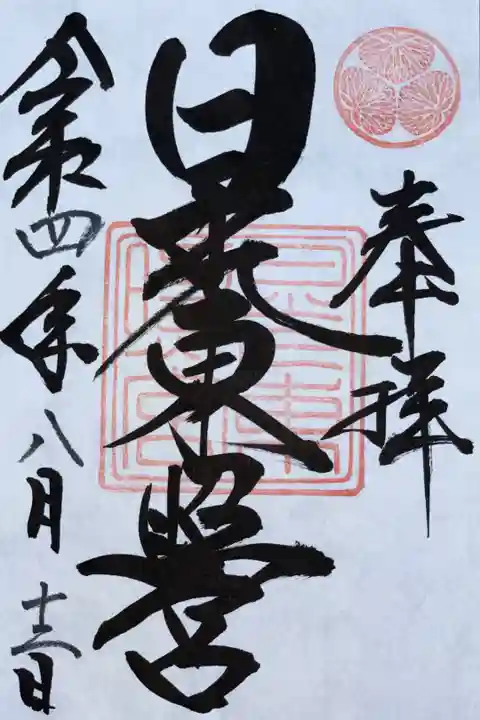 奉拝
日光東照宮
令和四年八月 日